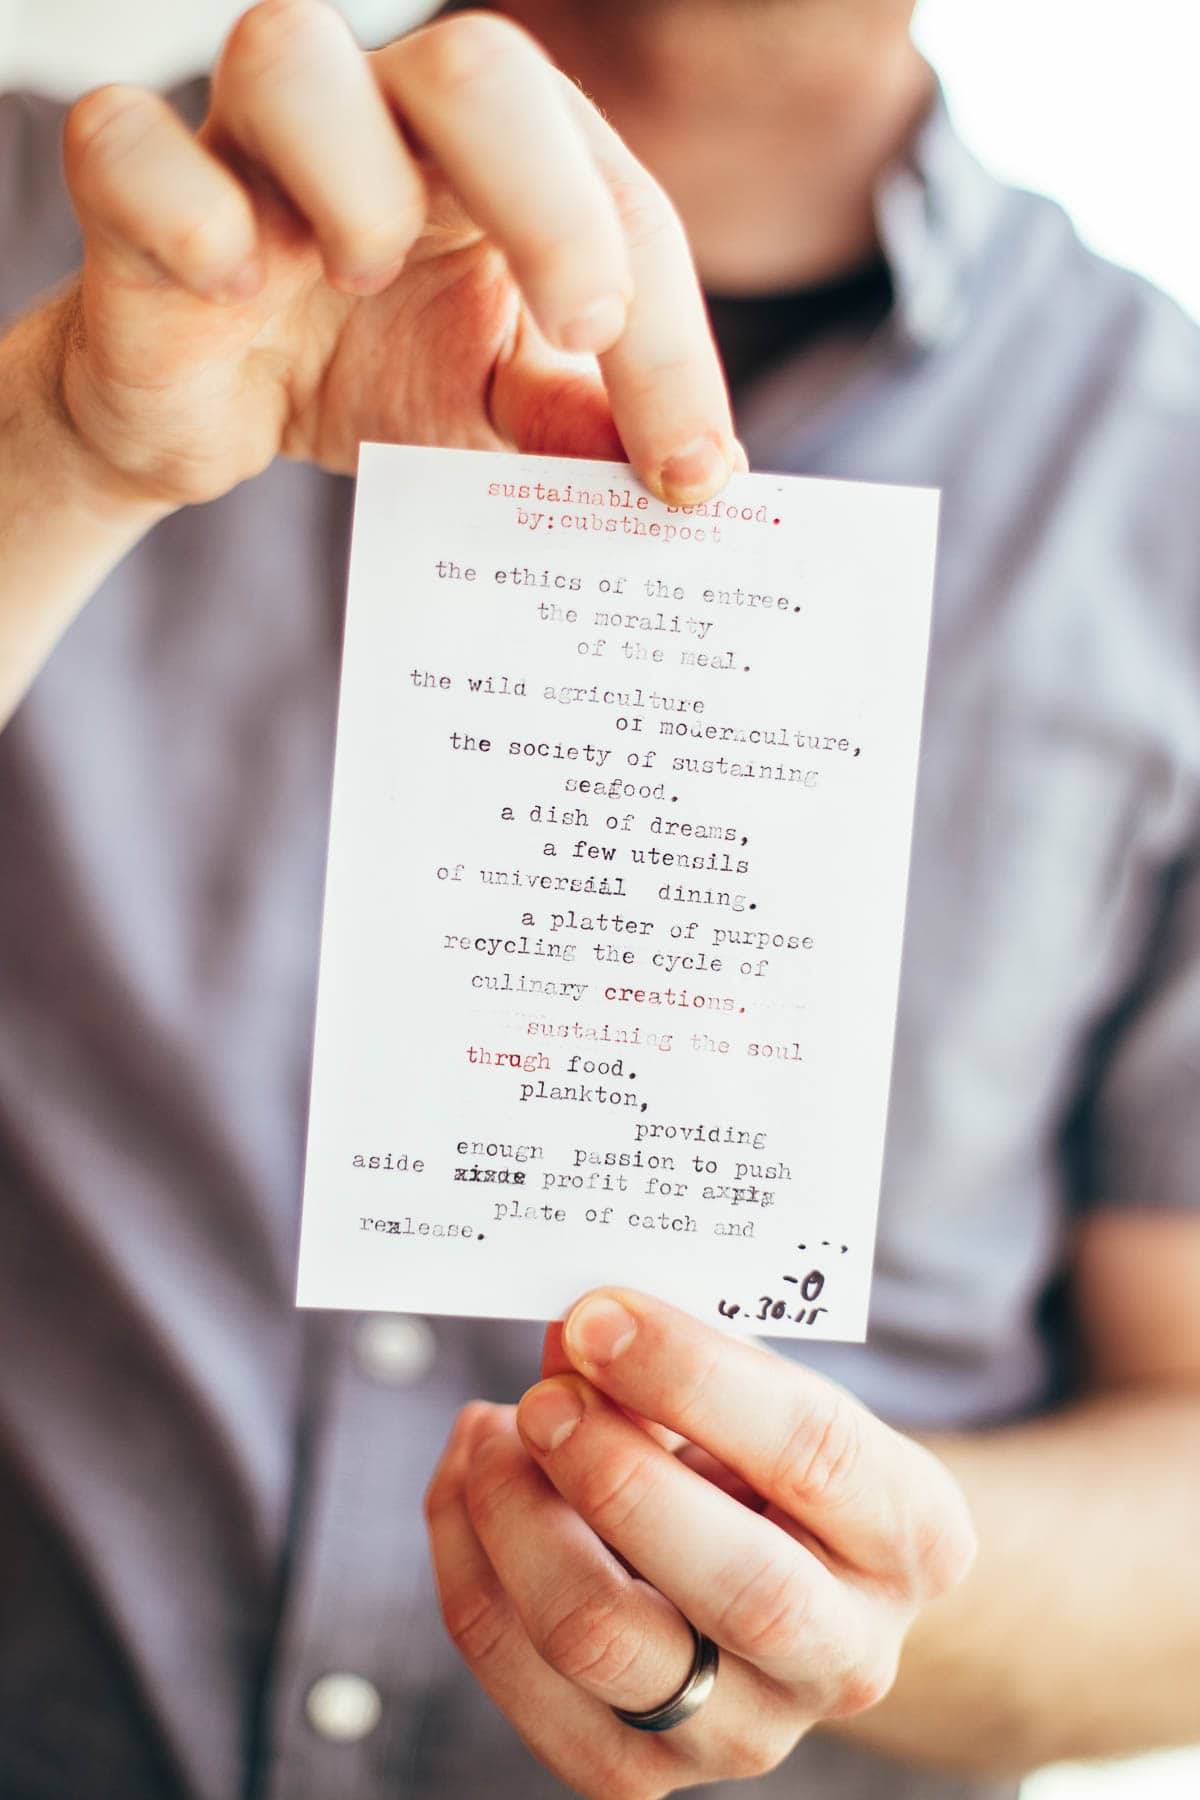 sustainable seafood.
by:cubsthepoet
the ethics of the entree.
the morality
of the meal.
the wild agriculture
of modernculture,
the society of sustaining
seafood.
a dish of dreams,
a few utensils
of universal dining.
a platter of purpose
recycling the cycle of
culinary creations,
sustaining the soul
thrugh food.
plankton,
providing
enough passion to push
aside profit for a
plate of catch and
release.
-O
6.30.15